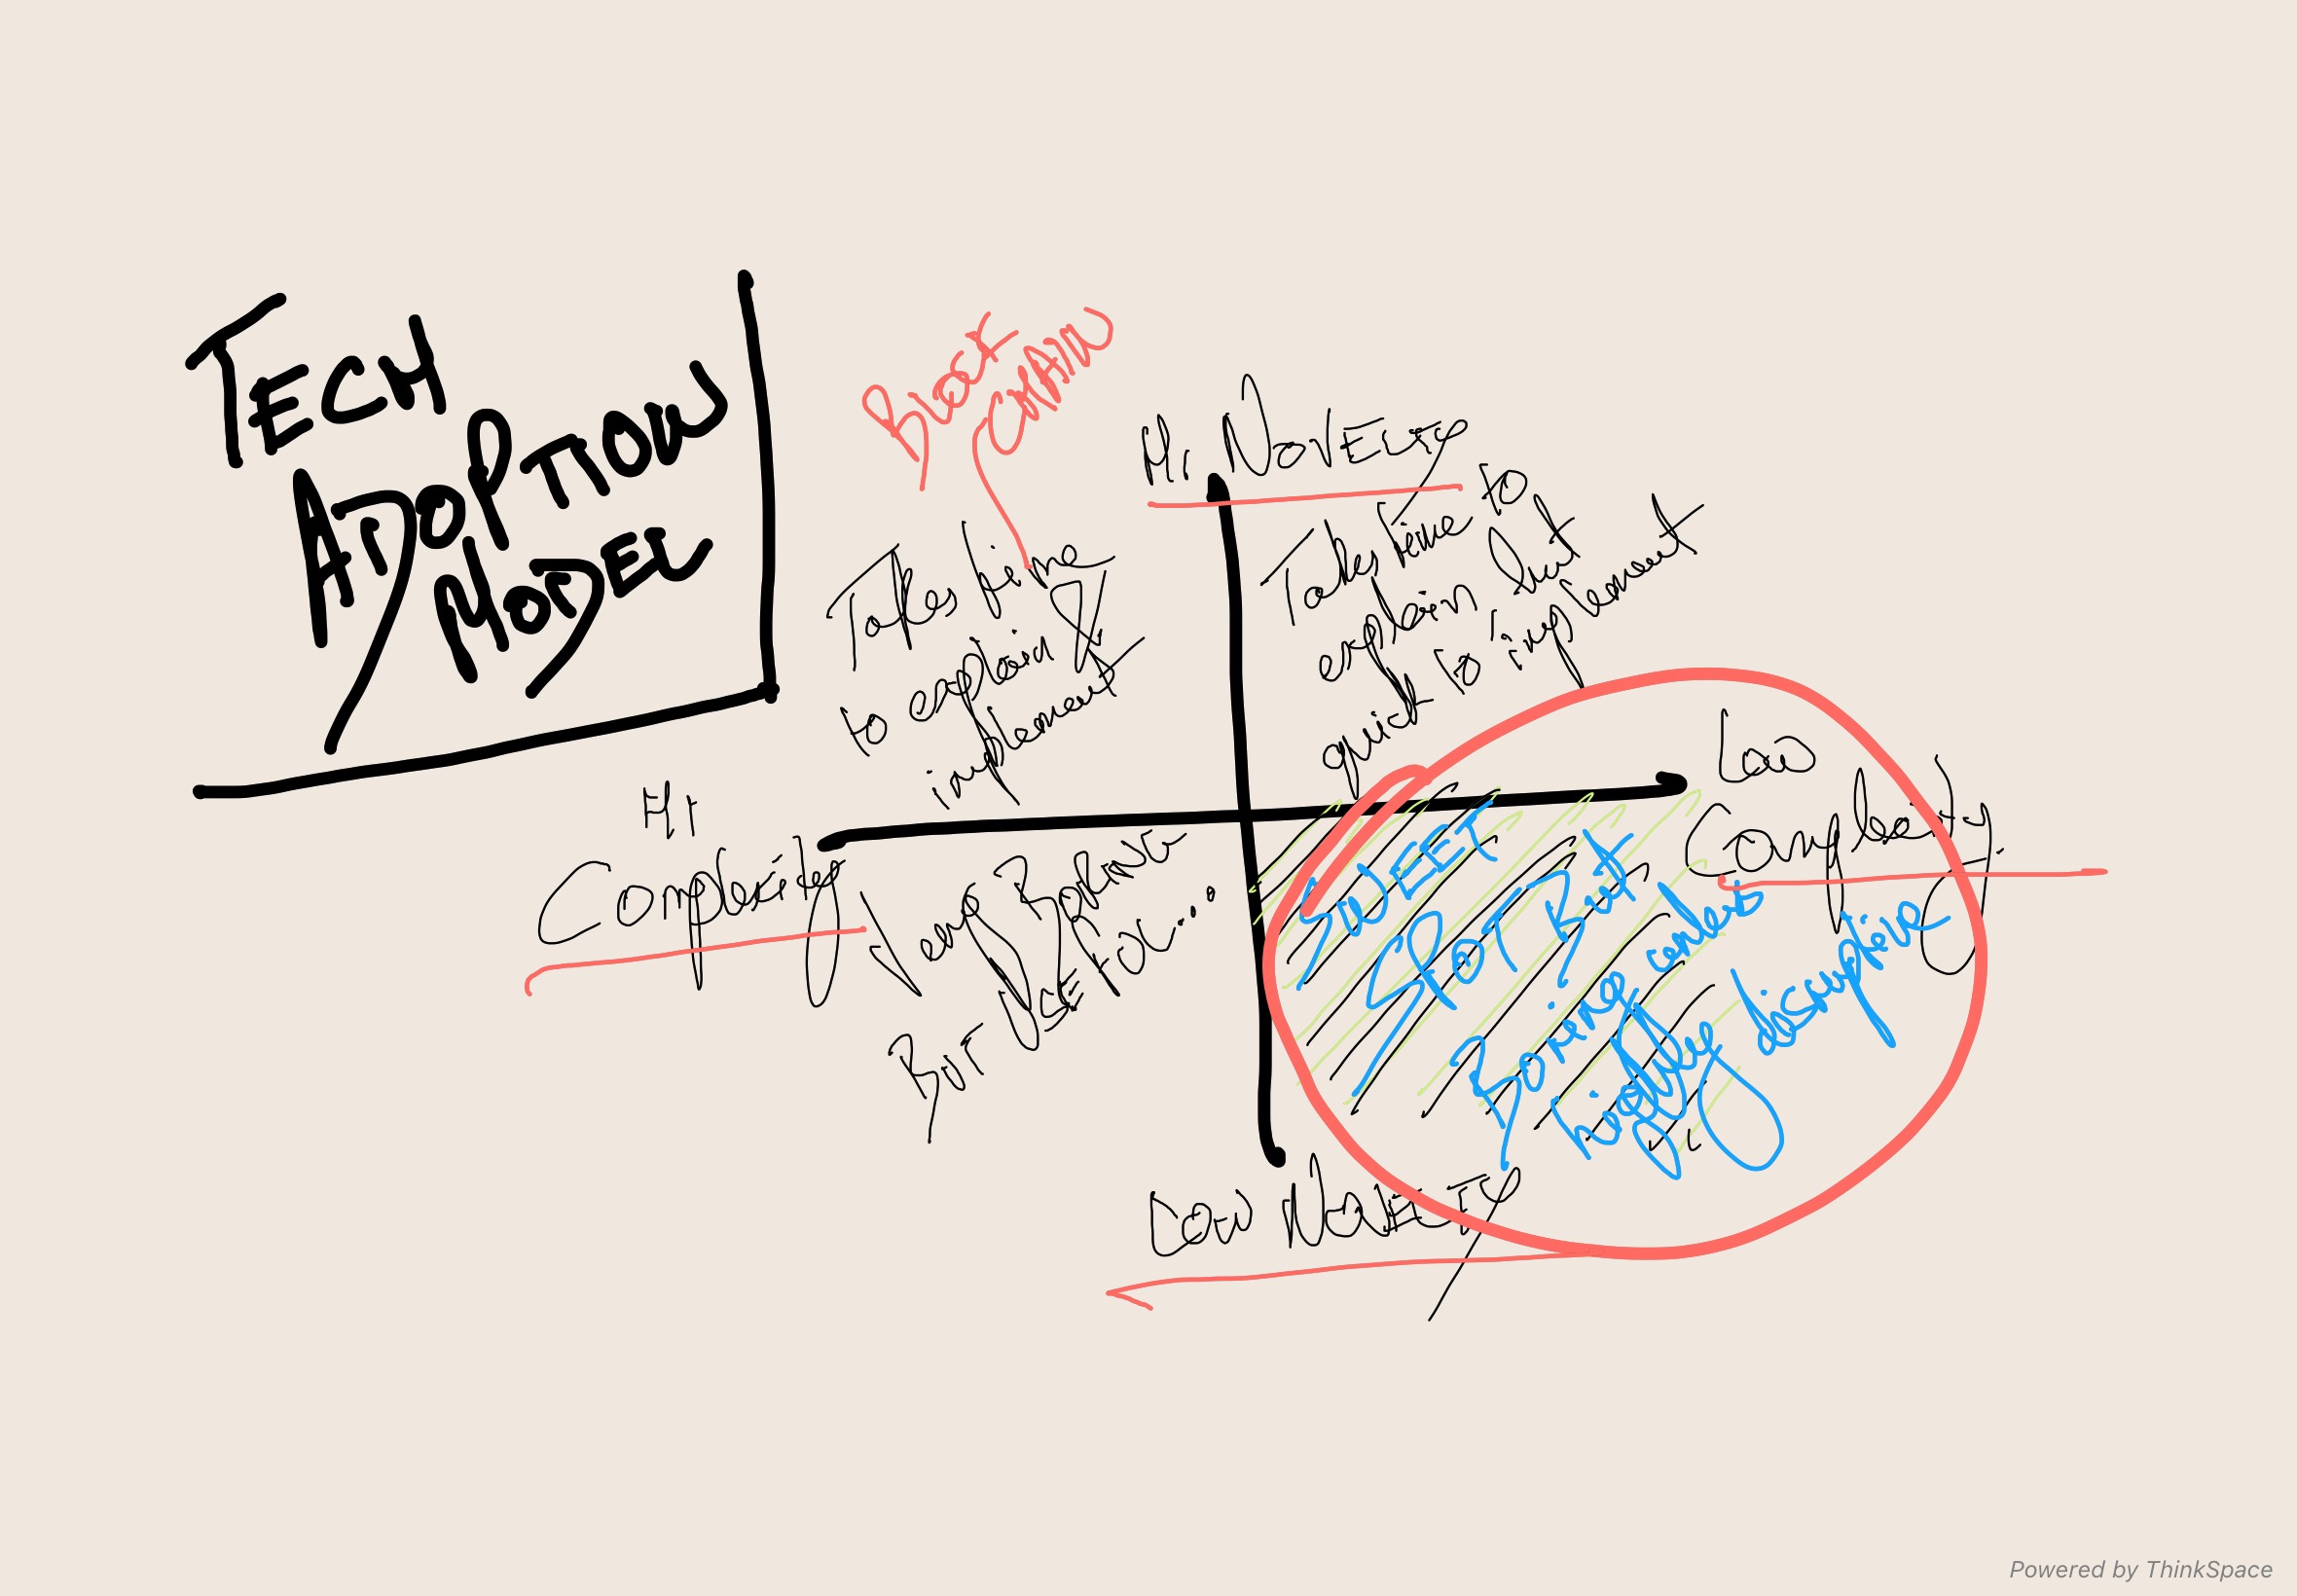 TECH
ADOPTION
MODEL
Hi NOVELTY
Takes time
to explain &
implement
Take time to
explain but
quick to implement
Hi
Complexity
Low
Complexity
Very
BUT
SWEET
SPOT BUT
Boring and
highly disruptive
LOW NOVELTY
Powered by ThinkSpace